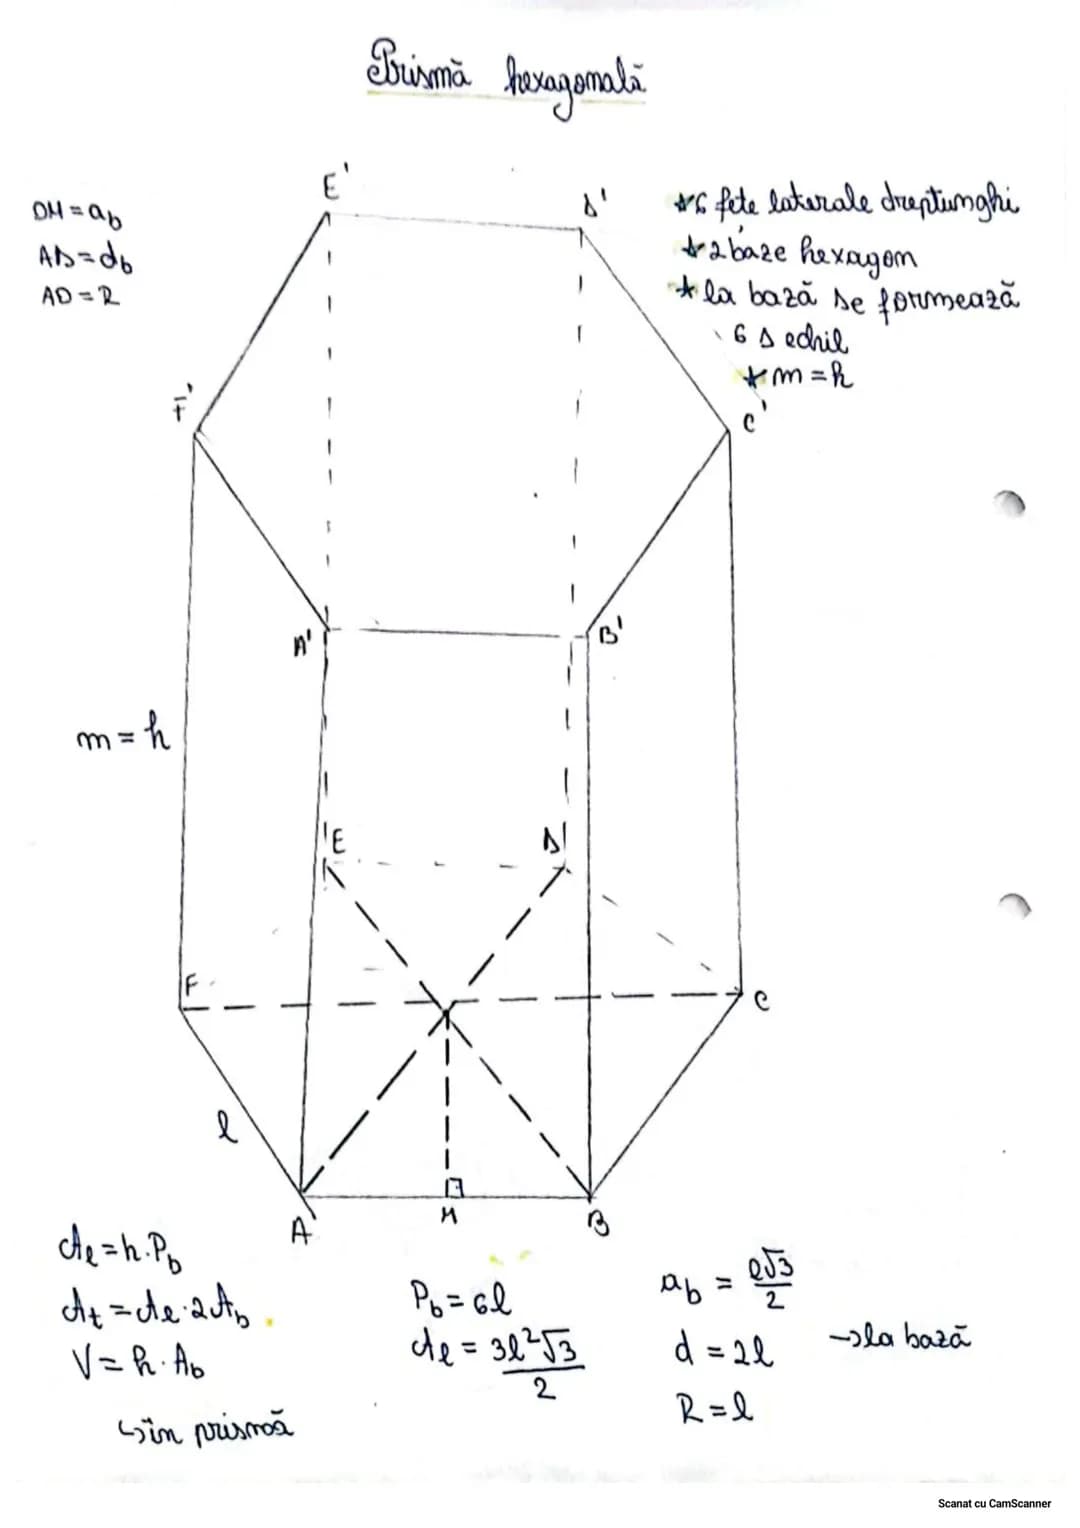 Prismă hexagonală
OM = ab
AD = db
AO = R
*6 fete laterale dreptunghi
*2 baze hexagon
*la bază se formează
6 Δ echil
*m = h
E'
D'
F'
C'
A'
B'
m = h
E
D
F
C
l
A
M
B
Al = h·Pb
At = Al·2Ab.
V = h·Ab
↳în prismă
Pb = 6l
Al = 3l²√3
2
ab = l√3
2
d = 2l
R = l
→la bază
Scanat cu CamScanner